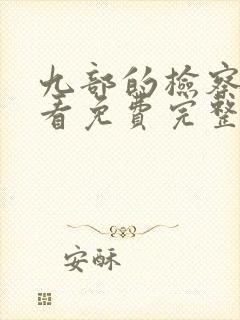 九部的检察
看免费完整
安酥